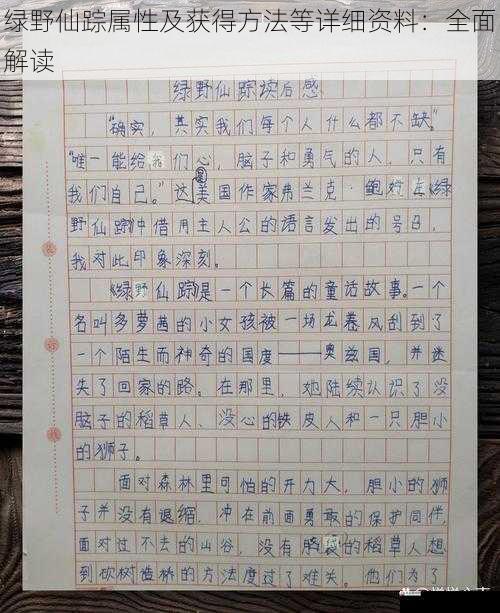 绿野仙踪属性及获得方法等详细资料：全面
解读
绿野仙踪读后感
“确实，其实我们每个人什么都不缺。”
“唯一能给我们心，脑子和勇气的人，只有
我们自己。”这美国作家弗兰克·鲍姆在《绿
野仙踪》中借用主人公的语言发出的号召，
我对此印象深刻。
《绿野仙踪》是一个长篇的童话故事。一个
名叫多萝茜的小女孩被一场龙卷风刮到了
一个陌生而神奇的国度——奥兹国，并迷
失了回家的路。在那里，她陆续认识了没
脑子的稻草人、没心的铁皮人和一只胆小
的狮子。
面对森林里可怕的开力大，胆小的狮
子并没有退缩，冲在前面勇敢的保护同伴，
面对过不去的山谷，没有脑袋的稻草人想
到砍树造桥的方法度过了难关。他们为了